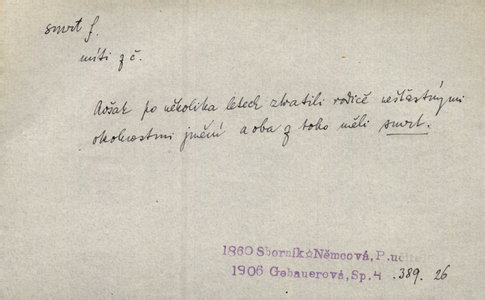 smrt f.
míti z č.
Avšak po několika letech ztratili rodiče nešťastnými
okolnostmi jmění a oba z toho měli smrt.
1860 Sborník☆Němcová, P. učitel
1906 Gebauerová, Sp. 4 .389. 26